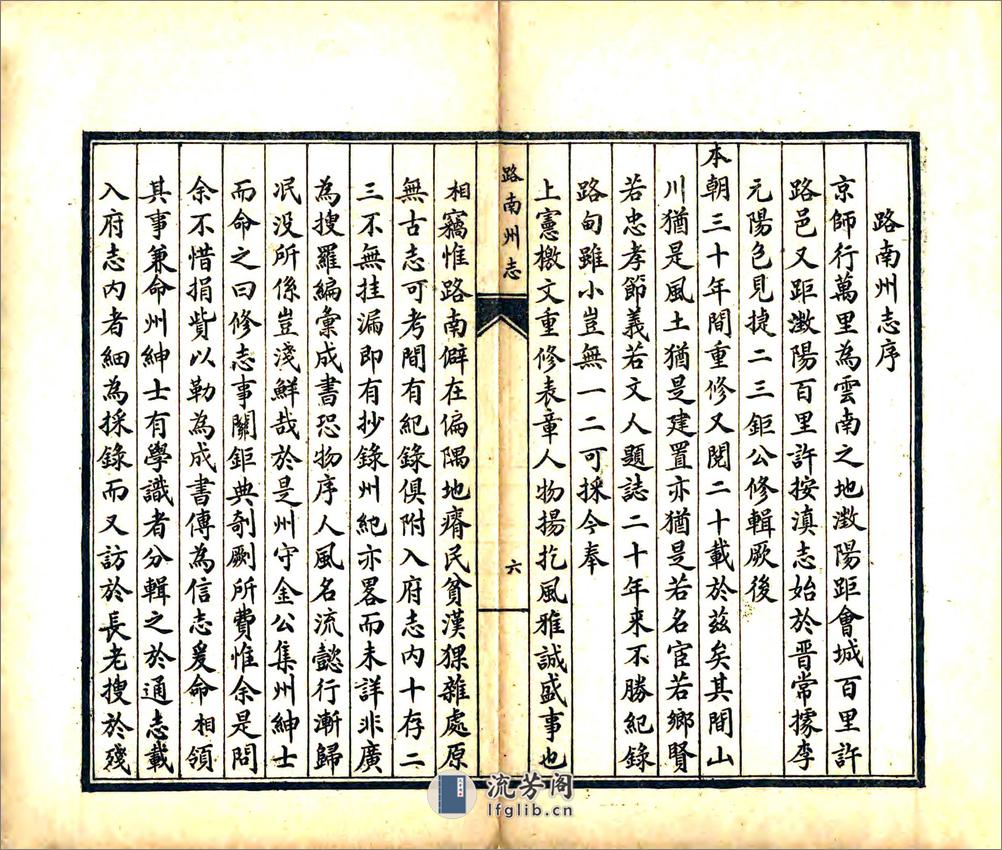 路南州志序
京師行萬里為雲南之地澂陽距會城百里許
路邑又距澂陽百里許按滇志始於晋常據李
元陽包見捷二三鉅公修輯厥後
本朝三十年間重修又閱二十載於兹矣其間山
川猶是風土猶是建置亦猶是若名宦若鄉賢
若忠孝節義若文人題誌二十年来不勝紀錄
路甸雖小豈無一二可採今奉
上憲檄文重修表章人物揚扢風雅誠盛事也
路南州志
六
相竊惟路南僻在偏隅地瘠民貧漢猓雜處原
無古志可考間有紀錄俱附入府志内十存二
三不無挂漏即有抄錄州紀亦畧而未詳非廣
為搜羅編彙成書恐物序人風名流懿行漸歸
泯没所係豈淺鮮哉於是州守金公集州紳士
而命之曰修志事關鉅典剞劂所費惟余是問
余不惜捐貲以勒為成書傳為信志爰命相領
其事兼命州紳士有學識者分輯之於通志載
入府志内者細為採錄而又訪於長老搜於殘
流芳阁
lfglib.cn